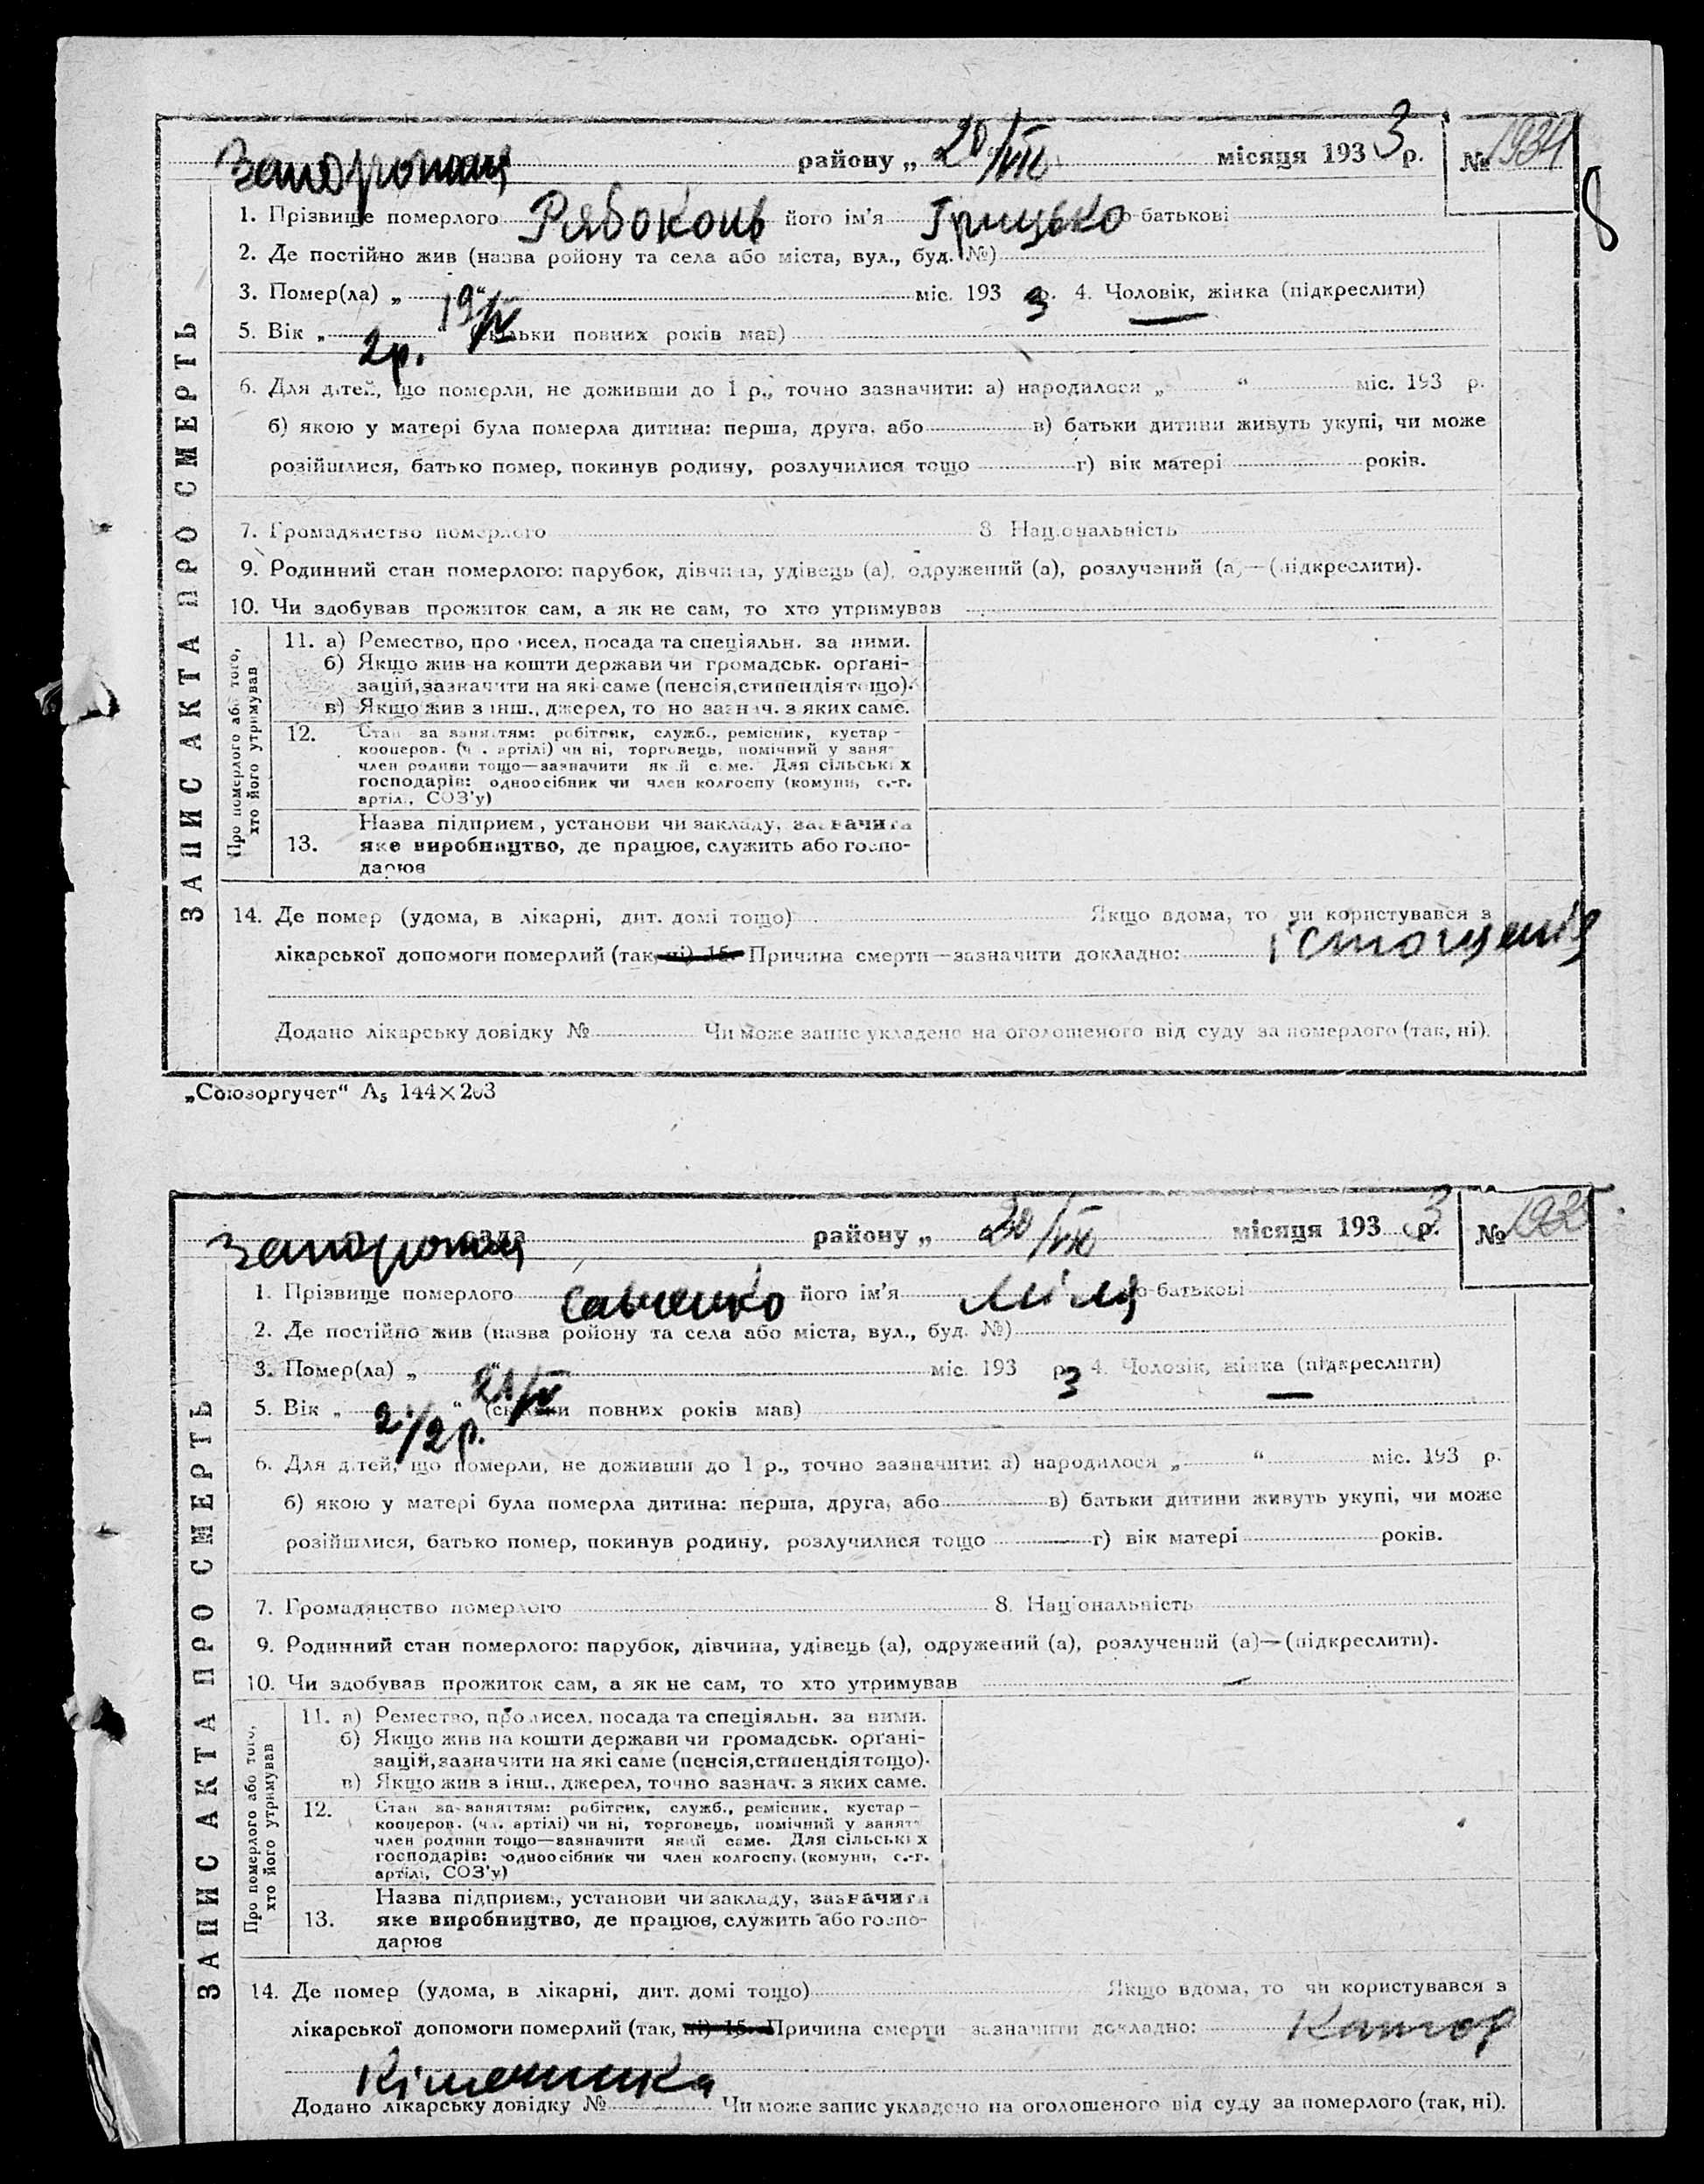 Запоріжжя району „ 20/VIII місяця 1933 р. № 1934
8
1. Прізвище померлого Рябоконь його ім'я Грицько по батькові
2. Де постійно жив (назва ройону та села або міста, вул., буд. №)
3. Помер(ла) „ 19/IV “ міс. 193 3 р. 4. Чоловік, жінка (підкреслити)
5. Вік „ 2 р. (скільки повних років мав)
6. Для дітей, що померли, не доживши до 1 р., точно зазначити: а) народилося „ “ міс. 193 р.
б) якою у матері була померла дитина: перша, друга, або в) батьки дитини живуть укупі, чи може
розійшлися, батько помер, покинув родину, розлучилися тощо г) вік матері років.
7. Громадянство померлого 8. Національність
9. Родинний стан померлого: парубок, дівчина, удівець (а), одружений (а), розлучений (а)—(підкреслити).
10. Чи здобував прожиток сам, а як не сам, то хто утримував
Про померлого або того,
хто його утримував
11. а) Ремество, промисел, посада та спеціяльн. за ними.
б) Якщо жив на кошти держави чи громадськ. орґані-
зацій, зазначити на які саме (пенсія, стипендія тощо).
в) Якщо жив з інш., джерел, точно зазнач. з яких саме.
12. Стан за заняттям: робітник, служб., ремісник, кустар—
кооперов. (чл. артілі) чи ні, торговець, помічний у занят
член родини тощо—зазначити який саме. Для сільських
господарів: одноосібник чи член колгоспу (комуни, с.-г.
артілі, СОЗ'у)
13. Назва підприєм., установи чи закладу, зазначити
яке виробництво, де працює, служить або госпо-
дарює
14. Де помер (удома, в лікарні, дит. домі тощо) Якщо вдома, то чи користувався з
лікарської допомоги померлий (так, ні) 15. Причина смерти—зазначити докладно: істощенія
Додано лікарську довідку № Чи може запис укладено на оголошеного від суду за померлого (так, ні).
ЗАПИС АКТА ПРО СМЕРТЬ
„Союзоргучет“ А5 144×203
Запоріжжя району „ 20/VIII місяця 1933 р. №
1. Прізвище померлого Савченко його ім'я Міля по батькові
2. Де постійно жив (назва ройону та села або міста, вул., буд. №)
3. Помер(ла) „ 21/IV “ міс. 193 3 р. 4. Чоловік, жінка (підкреслити)
5. Вік „ 2 1/2 р. “ (скільки повних років мав)
6. Для дітей, що померли, не доживши до 1 р., точно зазначити: а) народилося „ “ міс. 193 р.
б) якою у матері була померла дитина: перша, друга, або в) батьки дитини живуть укупі, чи може
розійшлися, батько помер, покинув родину, розлучилися тощо г) вік матері років.
7. Громадянство померлого 8. Національність
9. Родинний стан померлого: парубок, дівчина, удівець (а), одружений (а), розлучений (а)—(підкреслити).
10. Чи здобував прожиток сам, а як не сам, то хто утримував
Про померлого або того,
хто його утримував
11. а) Ремество, промисел, посада та спеціяльн. за ними.
б) Якщо жив на кошти держави чи громадськ. орґані-
зацій, зазначити на які саме (пенсія, стипендія тощо).
в) Якщо жив з інш., джерел, точно зазнач. з яких саме.
12. Стан за заняттям: робітник, служб., ремісник, кустар—
кооперов. (чл. артілі) чи ні, торговець, помічний у занят
член родини тощо—зазначити який саме. Для сільських
господарів: одноосібник чи член колгоспу (комуни, с.-г.
артілі, СОЗ'у)
13. Назва підприєм., установи чи закладу, зазначити
яке виробництво, де працює, служить або госпо-
дарює
14. Де помер (удома, в лікарні, дит. домі тощо) Якщо вдома, то чи користувався з
лікарської допомоги померлий (так, ні) 15. Причина смерти зазначити докладно:
Додано лікарську довідку № Чи може запис укладено на оголошеного від суду за померлого (так, ні).
ЗАПИС АКТА ПРО СМЕРТЬ